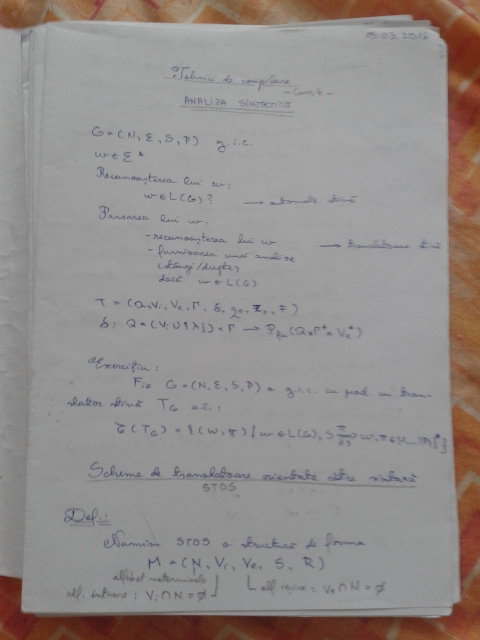 03.2016
Tehnici de compilare
- Curs 4 -
ANALIZA SINTACTICĂ
G = (N, Σ, S, P) g.i.c.
w ∈ Σ*
Recunoașterea lui w:
w ∈ L(G)? → automate stivă
Parsarea lui w:
- recunoașterea lui w → translatoare stivă
- furnizarea unei analize
(stângi/drepte)
dacă w ∈ L(G)
T = (Q, Vi, Ve, Γ, δ, q0, Z0, F)
δ: Q × (Vi ∪ {λ}) × Γ → P fin (Q × Γ* × Ve*)
Exercițiu:
Fie G = (N, Σ, S, P) = g.i.c. un trans-
lator stivă TG a.î.:
τ(TG) = {(w, π) | w ∈ L(G), S π⇒ w, π ∈ {1...|P|}*}
Scheme de translatoare orientate către sintaxă
STOS
Def.:
Numim STOS o structură de forma
M = (N, Vi, Ve, S, R)
alfabet neterminale
alf. intrare: Vi ∩ N = ∅ alf. ieșire: Ve ∩ N = ∅